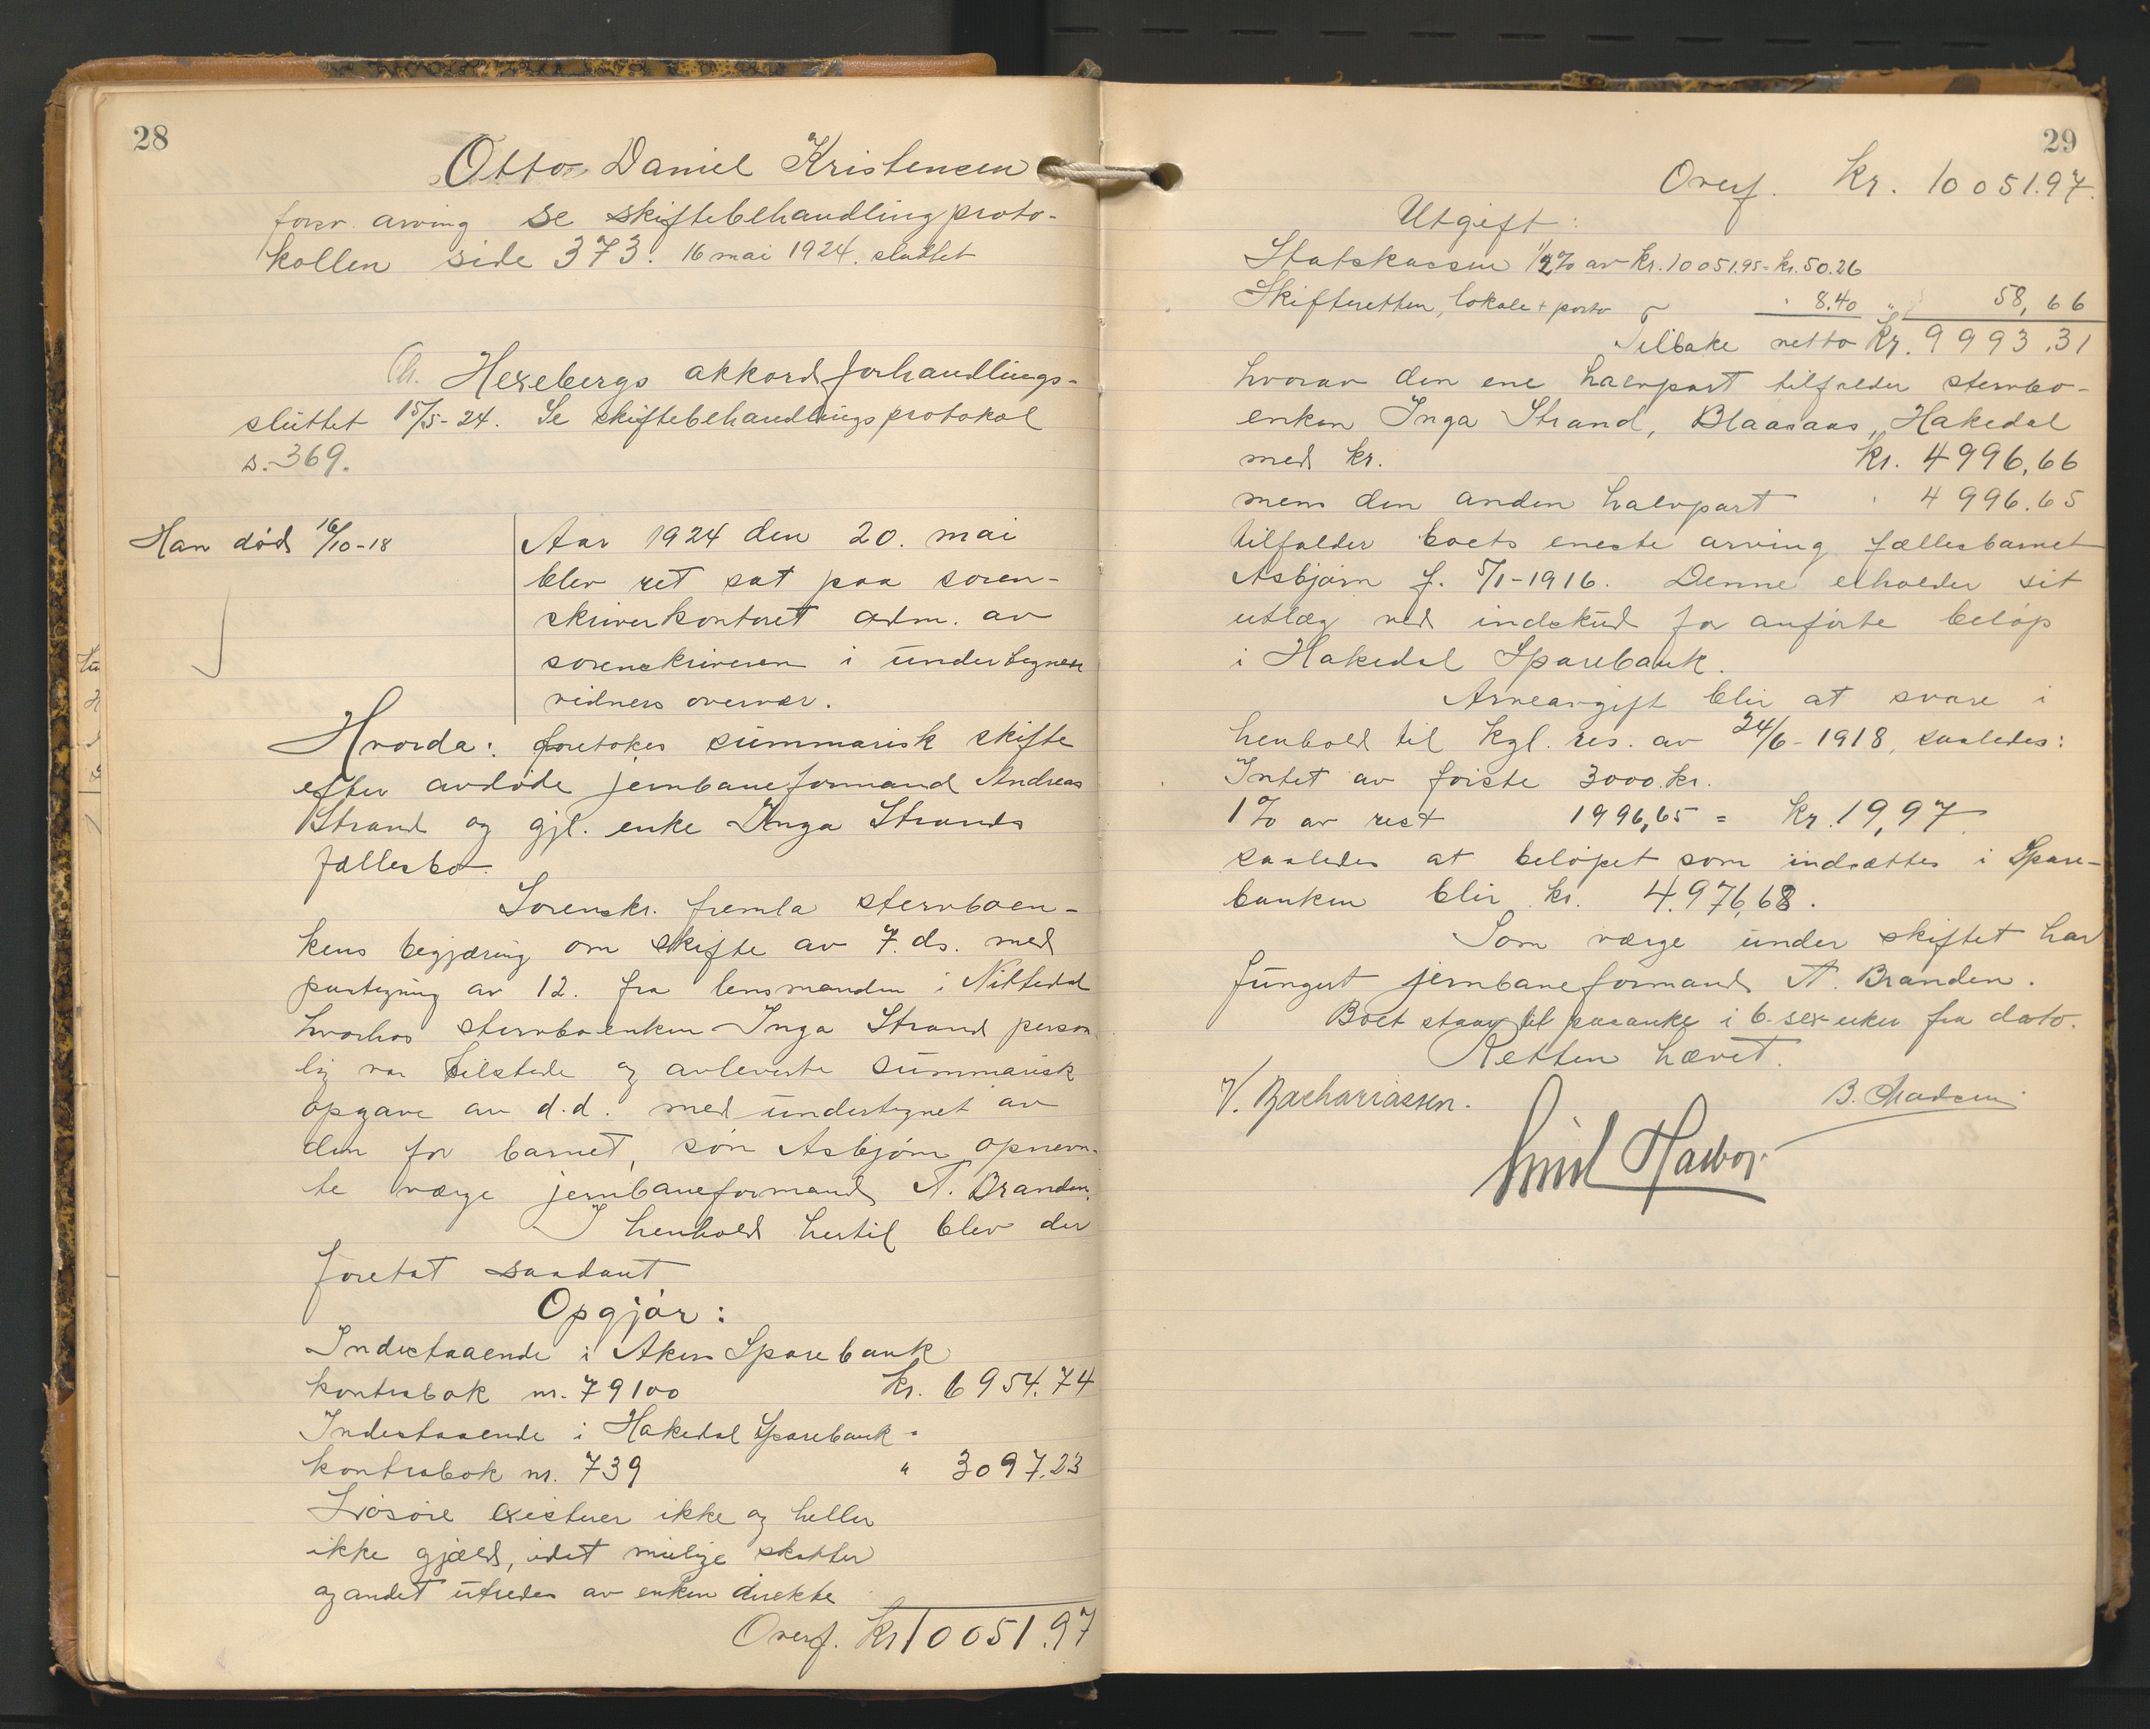 28
Otto Daniel Kristensen
forsv. arving se skiftebehandlingproto-
kollen side 373. 16 mai 1924. sluttet
Ch. Hexebergs akkordforhandlings-
sluttet 15/5-24. Se skiftebehandlingsprotokol
s. 369.
Han död 16/10-18
Aar 1924 den 20. mai
blev ret sat paa soren-
skriverkontoret adm. av
sorenskriveren i undertegnede
vidners overvær.
Hvorda: foretokes summarisk skifte
efter avdöde jernbaneformand Andreas
Strand og gjl. enke Inga Strands
fællesbo.
Sorenskr. fremla stervboen-
kens begjæring om skifte av 7. ds. med
paategning av 12. fra lensmanden i Nittedal
hvorhos stervboenken Inga Strand person-
lig var tilstede og avleverte summarisk
opgave av d.d. med undertegnet av
den for barnet, sön Asbjörn opnevn-
te værge jernbaneformand A. Branden.
I henhold hertil blev der
foretat saadant
Opgjör:
Indestaaende i Akers Sparebank
kontrabok nr. 79100 kr. 6954.74
Indestaaende i Hakedal Sparebank -
kontrabok nr. 739 " 3097.23
Lösöre existerer ikke og heller
ikke gjæld, idet mulige skatter
og andet utredes av enken direkte
Overf. kr 10051.97
29
Overf. kr. 10051.97.
Utgift:
Statskassen 1/2% av kr. 10051.95 = kr. 50.26
Skifteretten, lokale + porto " 8.40 " 58,66
Tilbake netto Kr. 9993.31
hvorav den ene halvpart tilfalder stervbo-
enken Inga Strand, Blaasaas, Hakedal
med kr. kr. 4996,66
mens den anden halvpart " 4996.65
tilfalder boets eneste arving fællesbarnet
Asbjörn f. 5/1-1916. Denne erholder sit
utlæg ved indskud for anförte belöp
i Hakedal Sparebank.
Arveavgift blir at svare i
henhold til kgl. res. av 24/6-1918, saaledes:
Intet av förste 3000 kr.
1% av rest 1996,65 = Kr. 19,97.
saaledes at belöpet som indsættes i Spare-
banken blir kr. 4.976,68.
Som værge under skiftet har
fungert jernbaneformand A. Branden.
Boet staar til paaanke i 6-sex-uker fra dato.
Retten hævet.
V. Zachariassen. B. Madsen
Emil